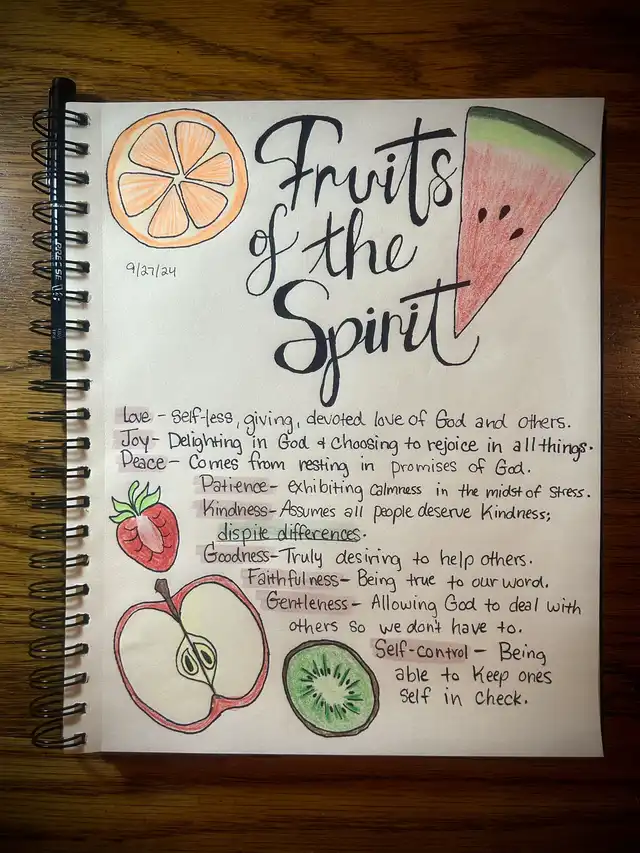 Fruits
of the
Spirit
9/27/24
Love - Self-less, giving, devoted love of God and others.
Joy - Delighting in God & choosing to rejoice in all things.
Peace - Comes from resting in promises of God.
Patience - exhibiting calmness in the midst of stress.
Kindness - Assumes all people deserve kindness;
dispite differences.
Goodness - Truly desiring to help others.
Faithfulness - Being true to our word.
Gentleness - Allowing God to deal with
others so we don't have to.
Self-control - Being
able to keep ones
self in check.